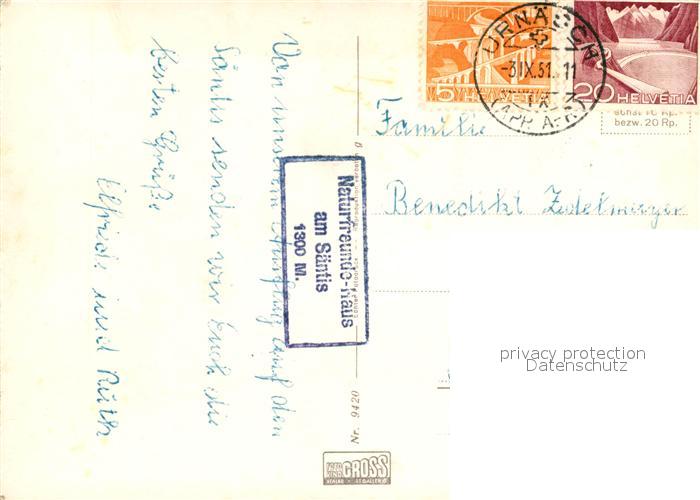 Von unserem Ausflug auf den
Säntis senden wir Euch die
besten Grüße
Elfriede und Ruth
Naturfreunde-Haus
am Säntis
1300 M.
Nr. 9420
GROSS
5 HELVETIA
20 HELVETIA
URNÄSCH
-3.IX.51.11
(APP. A.-RH.)
bezw. 20 Rp.
Familie
Benedikt
privacy protection
Datenschutz